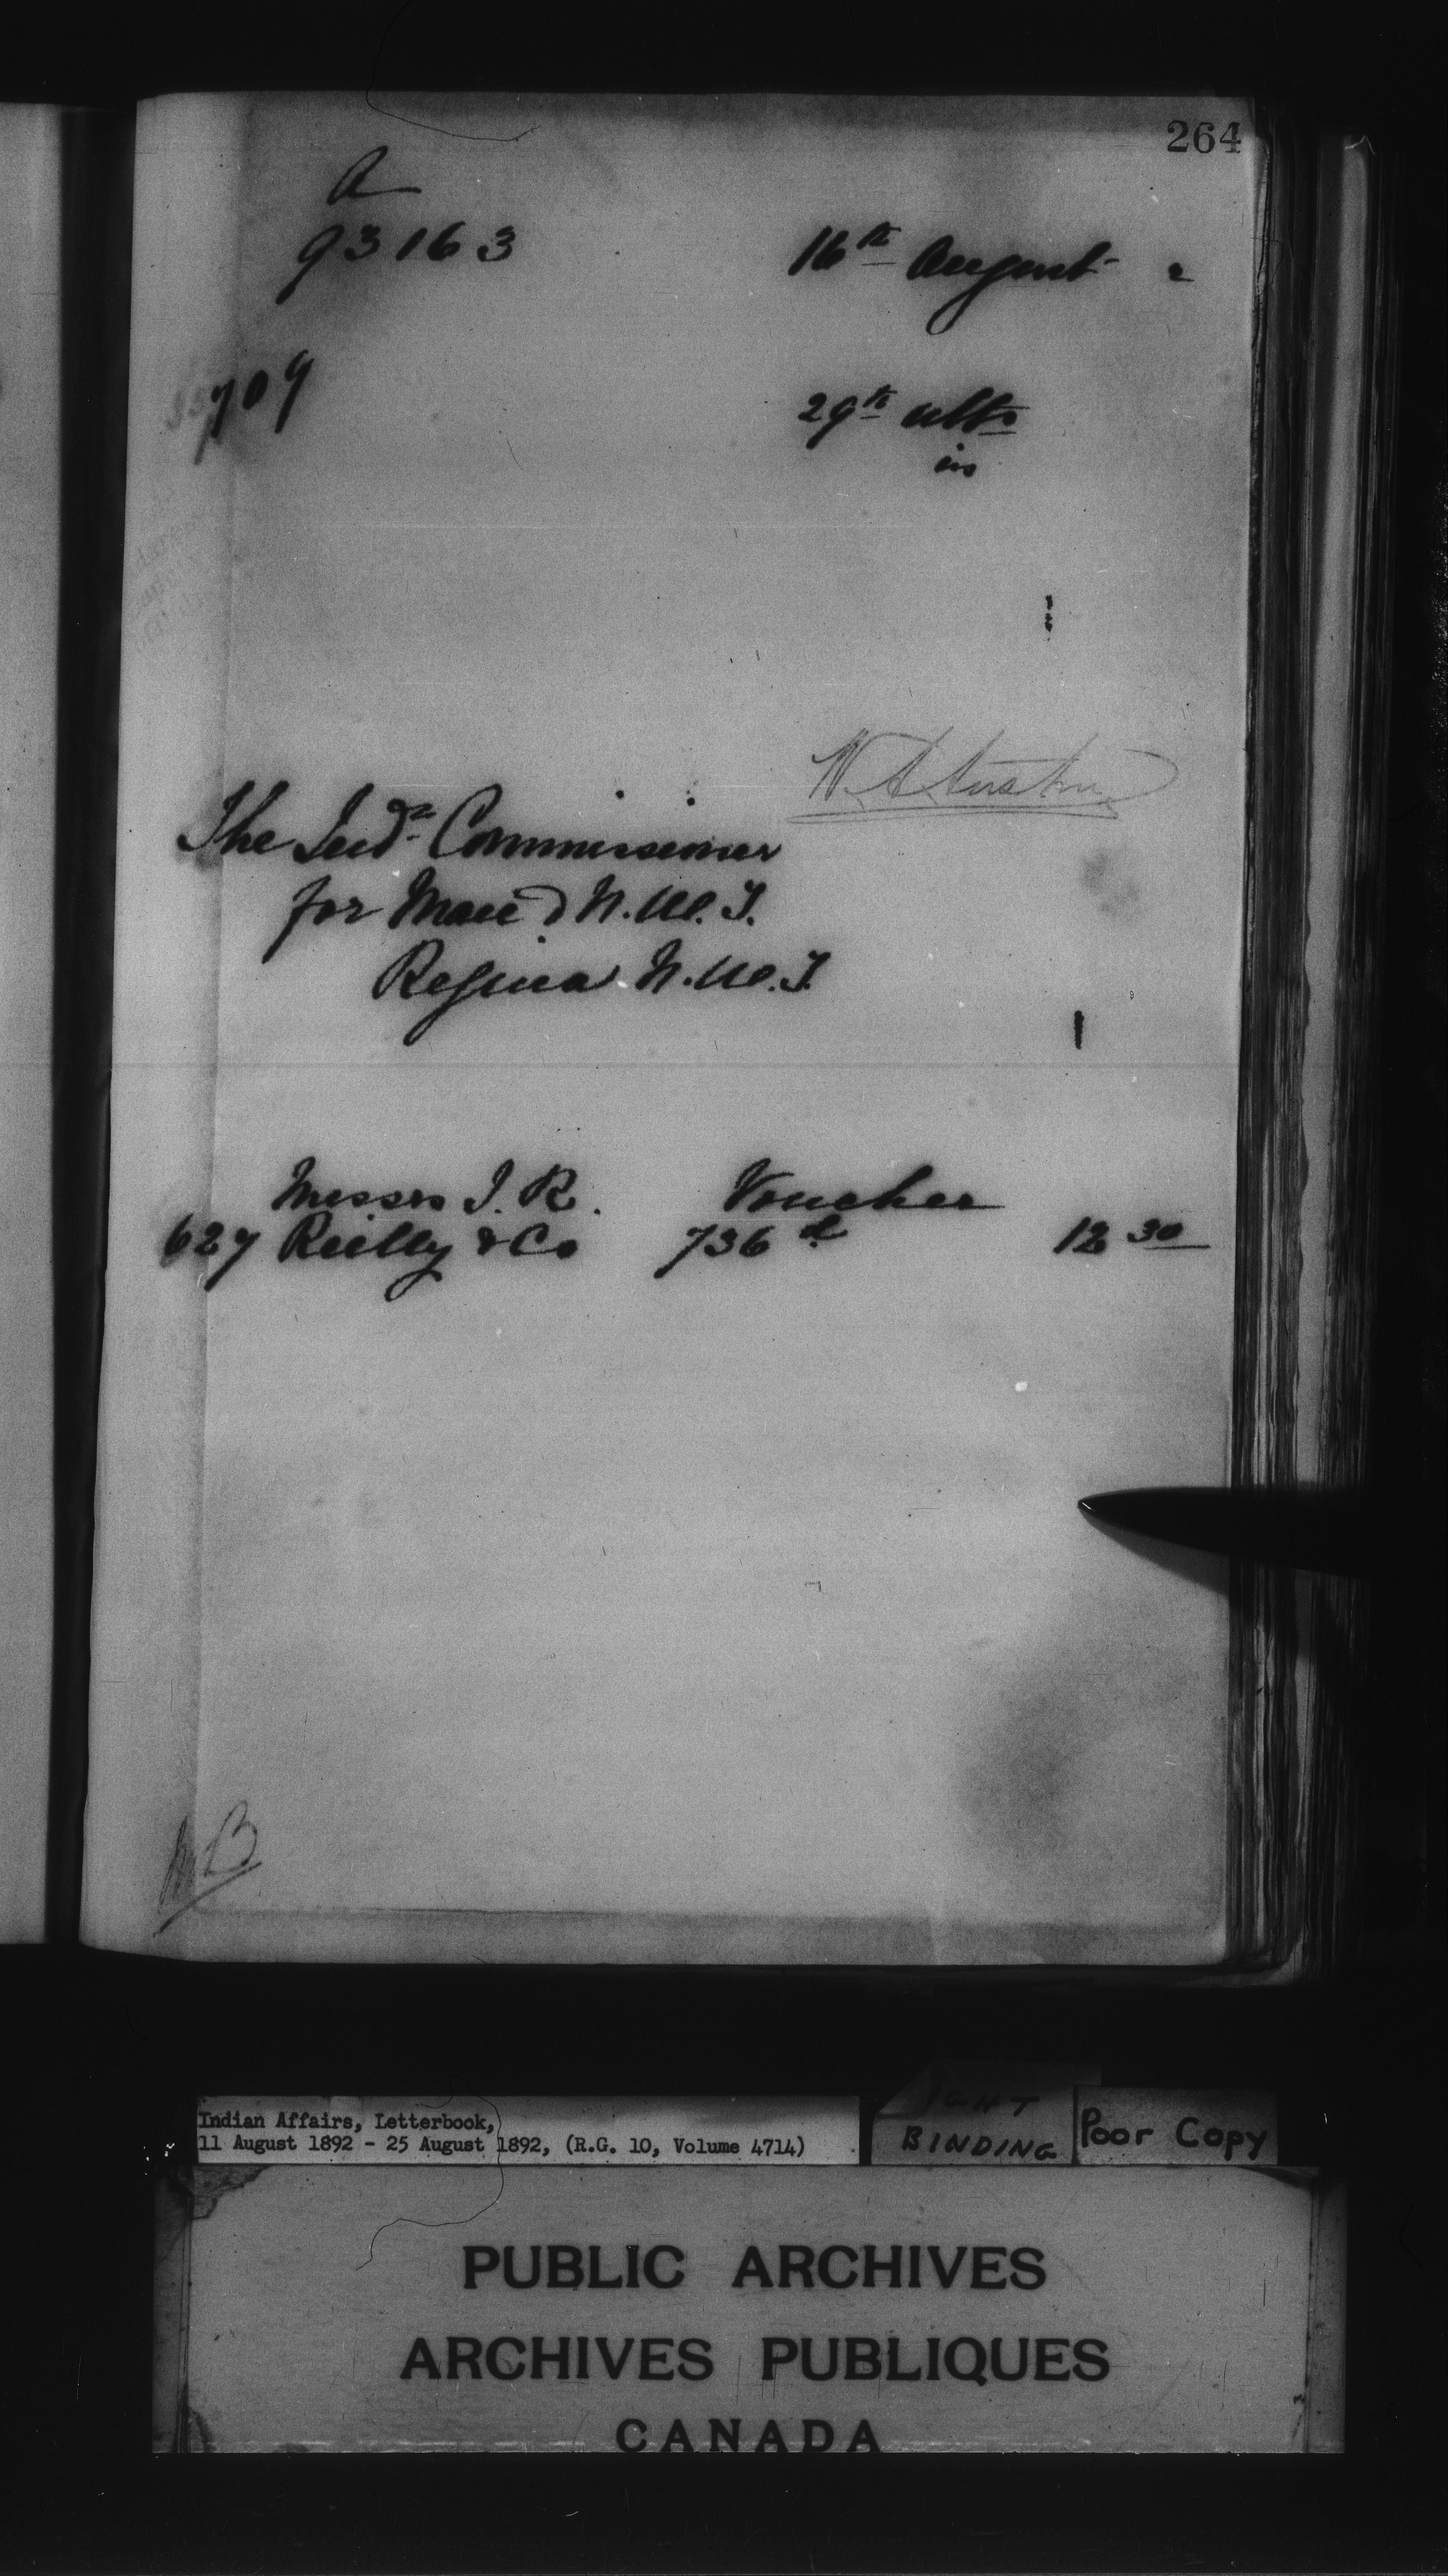 264
A
93163
16th August 2
709
29th ulto
in
W. A. Austin
The Indn Commissioner
for Man & N.W.T.
Regina N.W.T.
Messrs J. R. Voucher
627 Reilly & Co 736 d 12 30
B
Indian Affairs, Letterbook,
11 August 1892 - 25 August 1892, (R.G. 10, Volume 4714)
BINDING
Poor Copy
PUBLIC ARCHIVES
ARCHIVES PUBLIQUES
CANADA